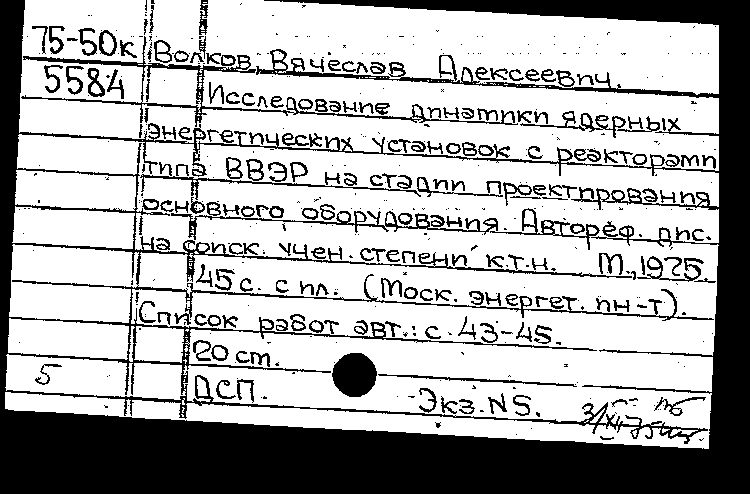 75-50к Волков, Вячеслав Алексеевич.
5584 Исследование динамики ядерных
энергетических установок с реакторами
типа ВВЭР на стадии проектирования
основного оборудования. Автореф. дис.
на соиск. учен. степени к.т.н. М., 1975.
45 с. с ил. (Моск. энергет. ин-т).
Список работ авт.: с. 43-45.
20 см.
5 ДСП. Экз. N5.